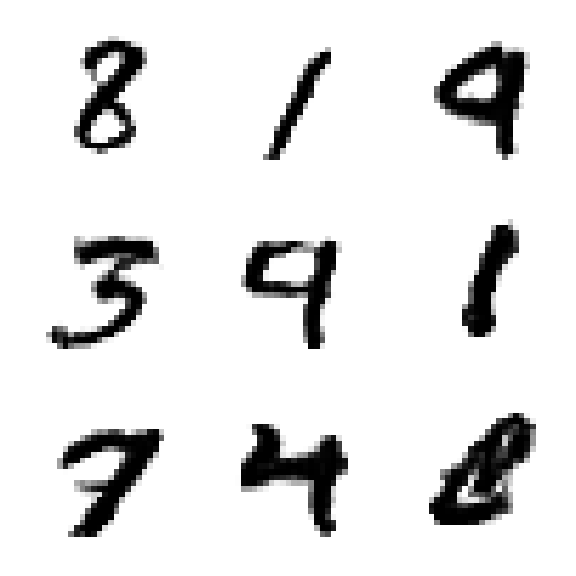 8 1 9
3 9 1
7 4 8